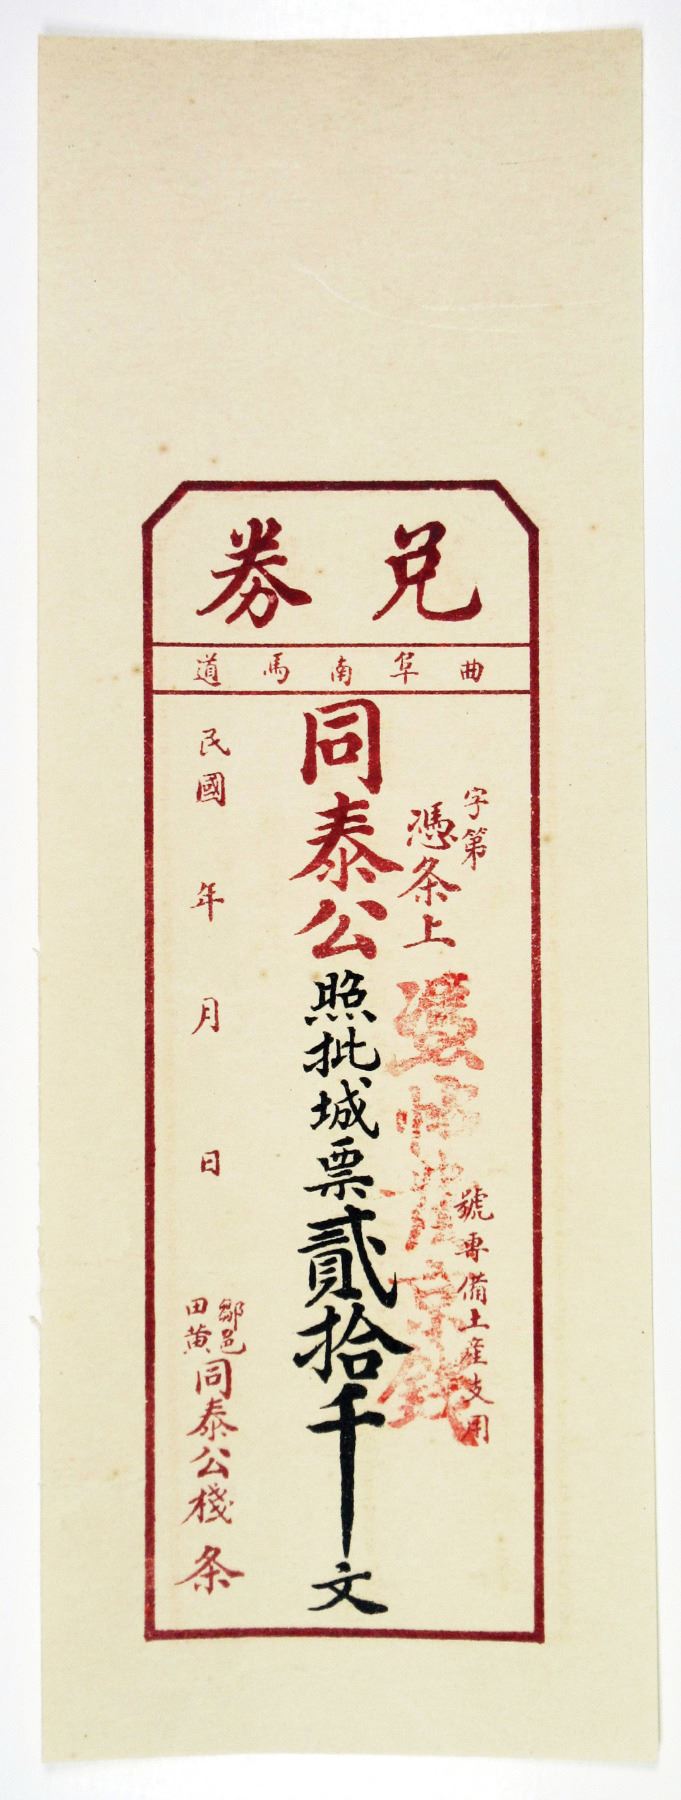 兑券
曲阜南馬道
字第　號專備土産支用
憑条上
憑帖發京錢
同泰公照批城票貳拾千文
民國　年　月　日
鄒邑
田黄
同泰公棧条